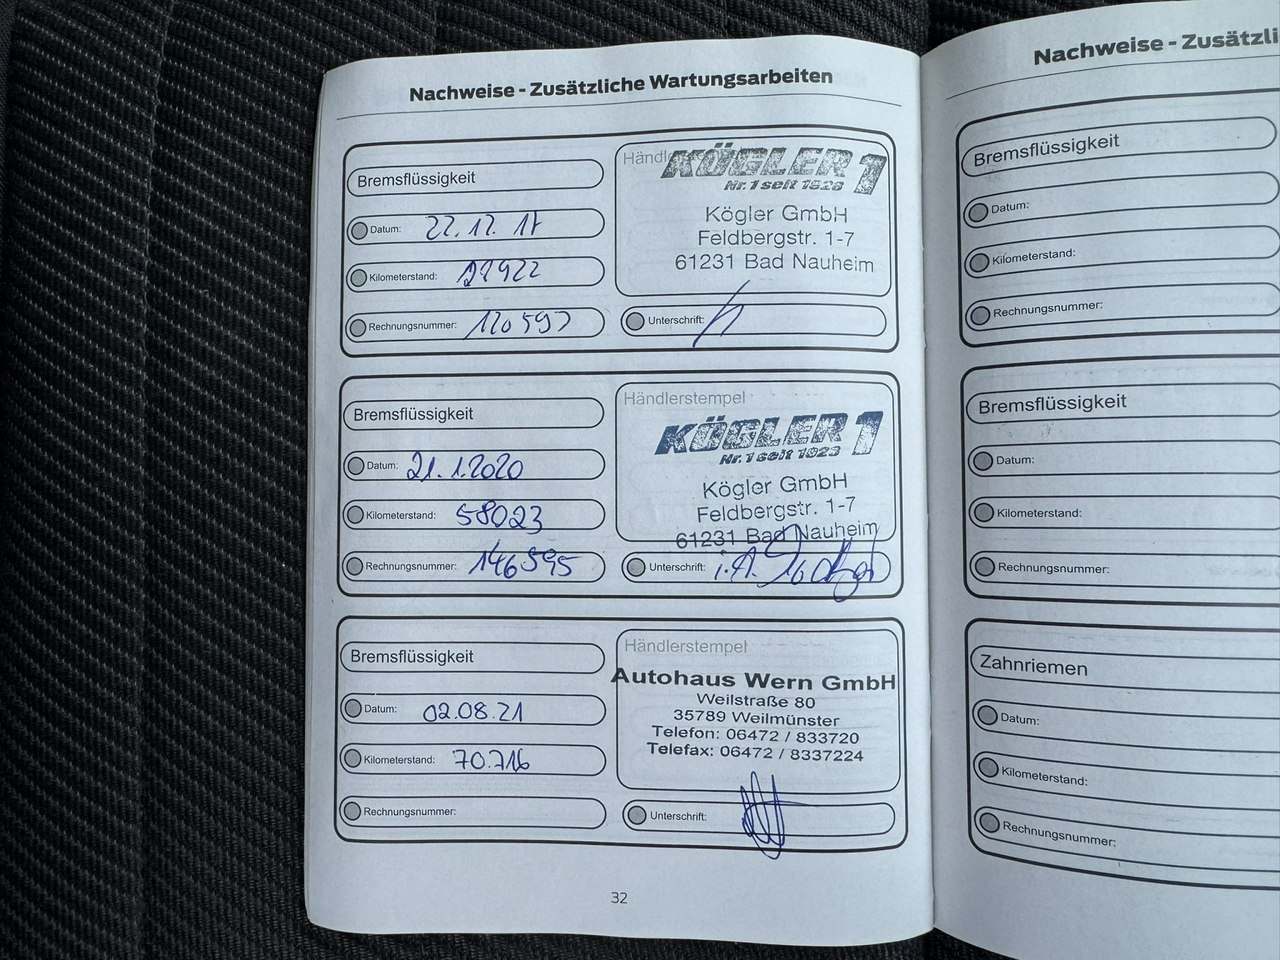 Nachweise - Zusätzliche Wartungsarbeiten
Bremsflüssigkeit
Datum: 22.12.17
Kilometerstand: 27922
Rechnungsnummer: 120597
KÖGLER 1
Nr. 1 seit 1823
Kögler GmbH
Feldbergstr. 1-7
61231 Bad Nauheim
Unterschrift:
Bremsflüssigkeit
Datum: 21.1.2020
Kilometerstand: 58023
Rechnungsnummer: 146595
Händlerstempel
KÖGLER 1
Nr. 1 seit 1823
Kögler GmbH
Feldbergstr. 1-7
61231 Bad Nauheim
Unterschrift: i.A.
Bremsflüssigkeit
Datum: 02.08.21
Kilometerstand: 70.716
Rechnungsnummer:
Händlerstempel
Autohaus Wern GmbH
Weilstraße 80
35789 Weilmünster
Telefon: 06472 / 833720
Telefax: 06472 / 8337224
Unterschrift:
32
Nachweise - Zusätzli
Bremsflüssigkeit
Datum:
Kilometerstand:
Rechnungsnummer:
Bremsflüssigkeit
Datum:
Kilometerstand:
Rechnungsnummer:
Zahnriemen
Datum:
Kilometerstand:
Rechnungsnummer: